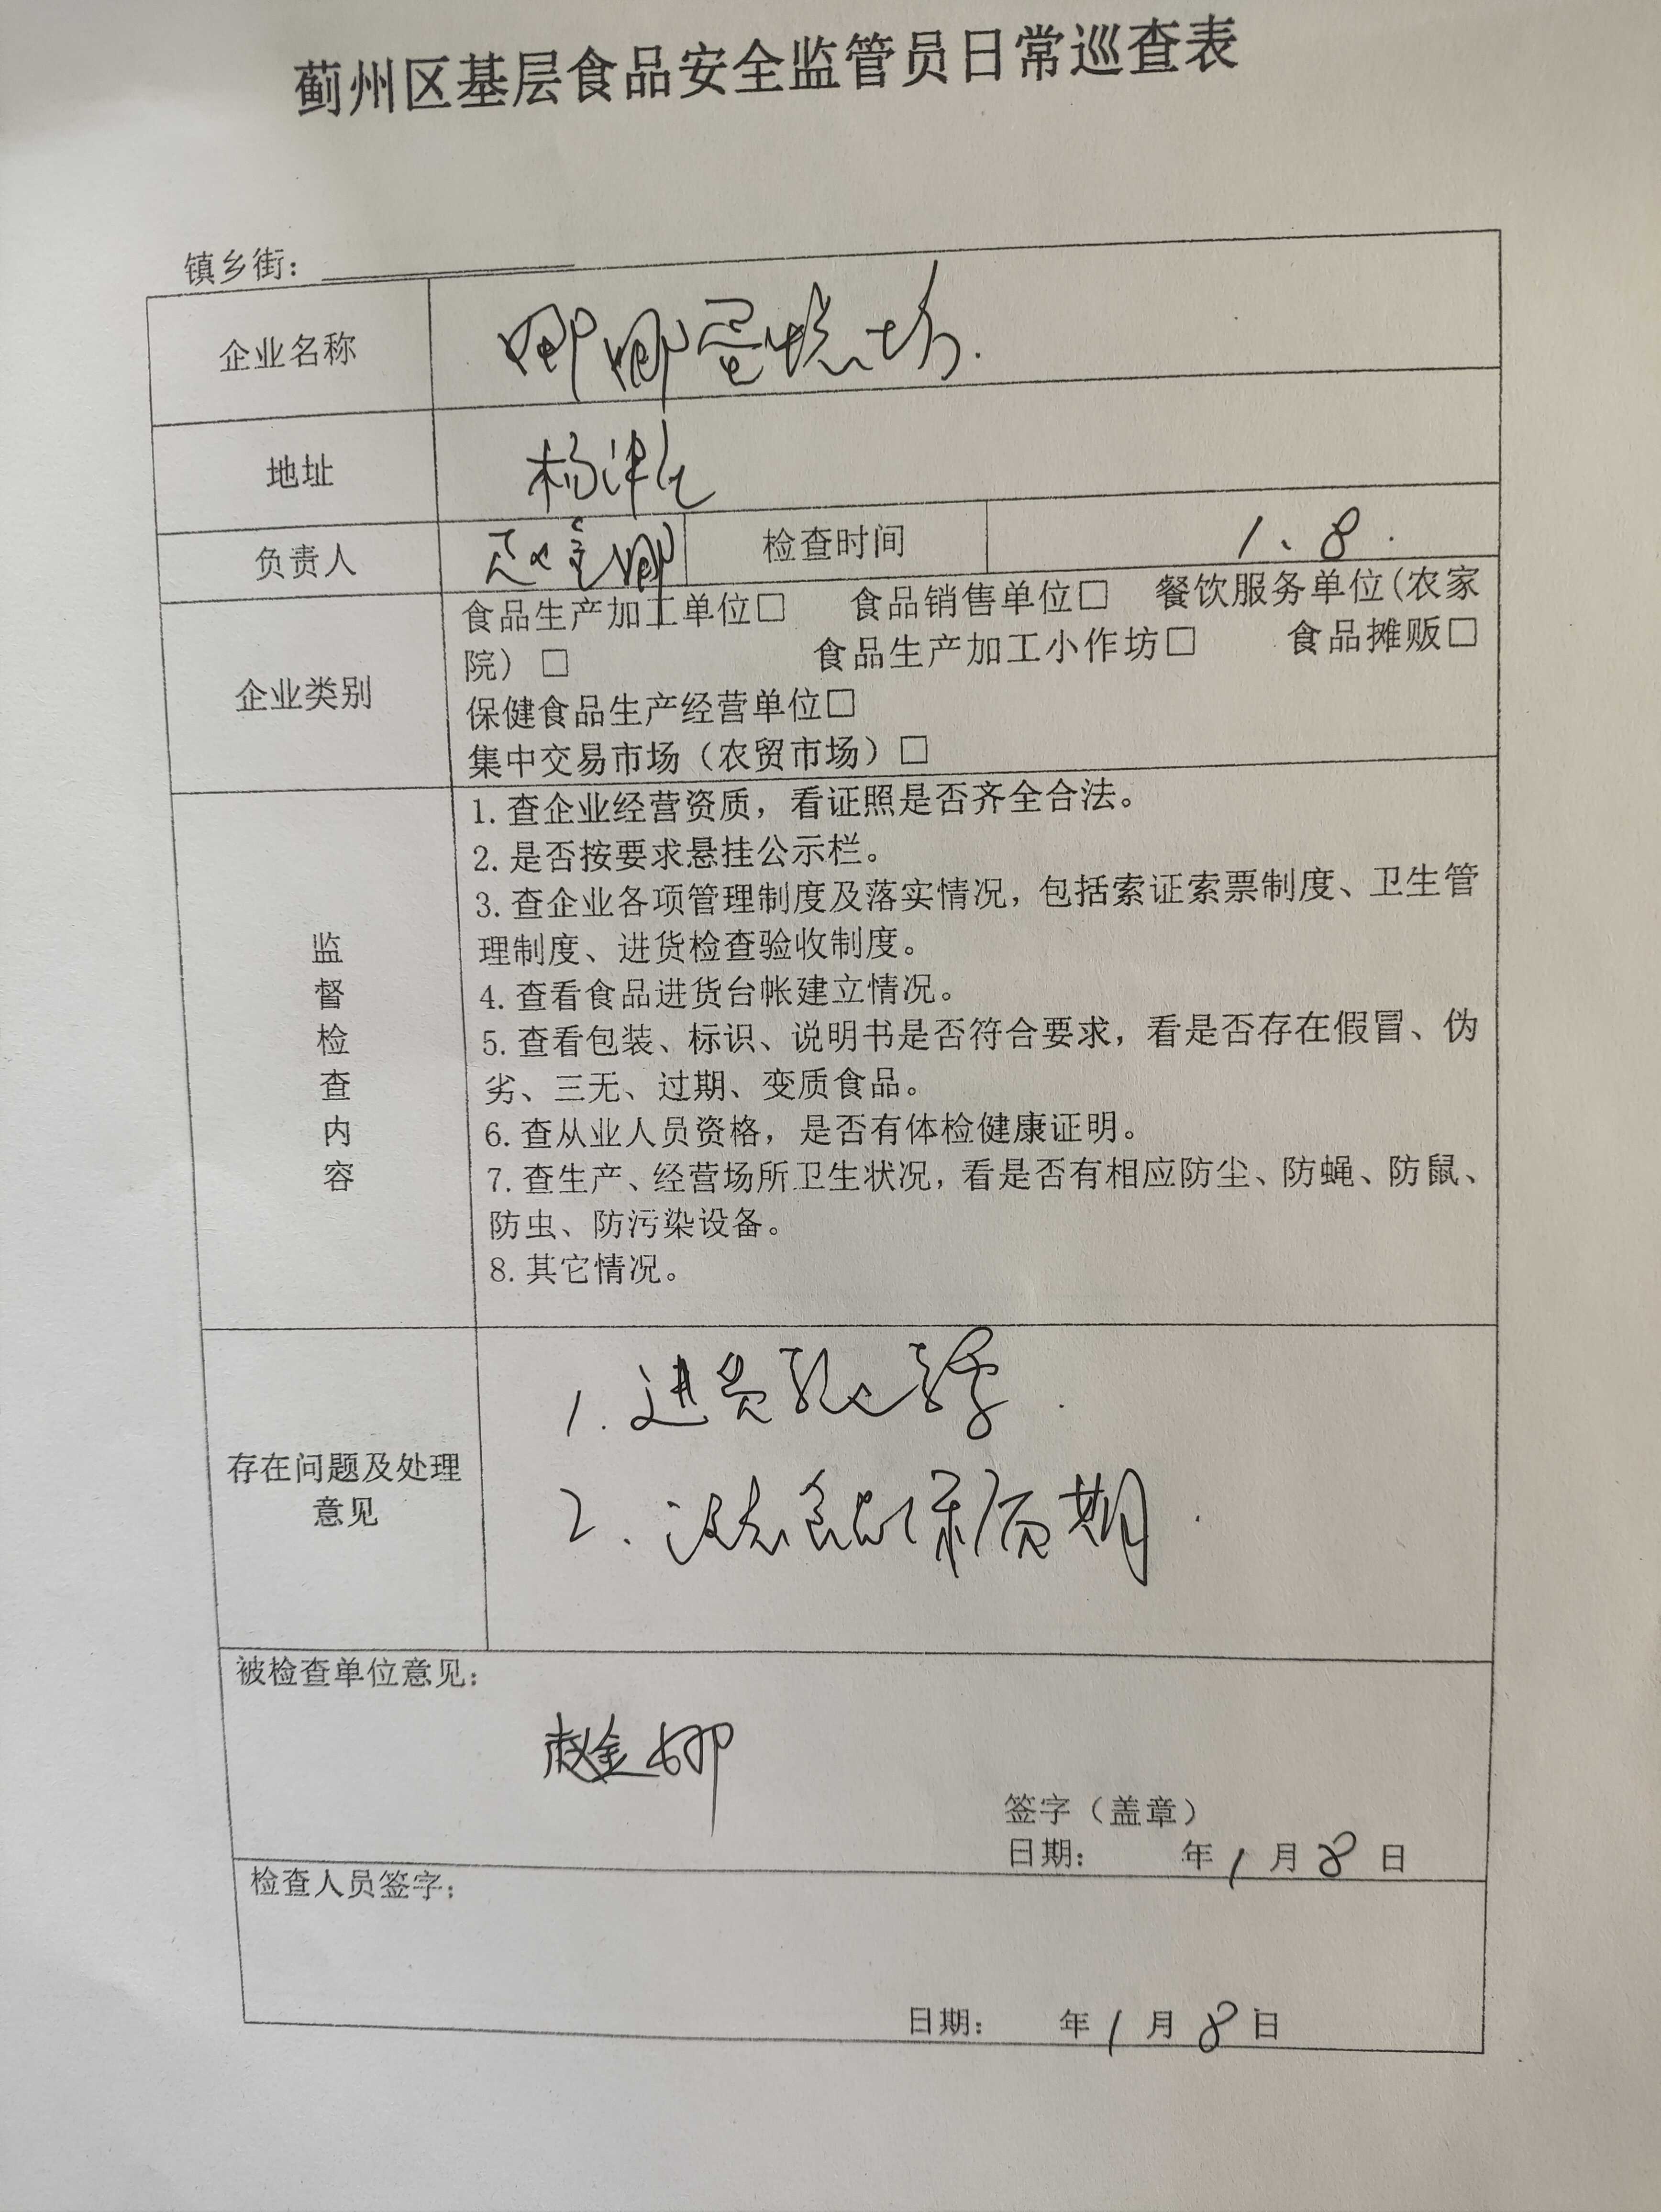 蓟州区基层食品安全监管员日常巡查表
镇乡街：
企业名称 娜娜蛋烧坊.
地址 杨津庄
负责人 赵金娜 检查时间 1、8.
企业类别
食品生产加工单位□ 食品销售单位□ 餐饮服务单位(农家
院）□ 食品生产加工小作坊□ 食品摊贩□
保健食品生产经营单位□
集中交易市场（农贸市场）□
监督检查内容
1.查企业经营资质，看证照是否齐全合法。
2.是否按要求悬挂公示栏。
3.查企业各项管理制度及落实情况，包括索证索票制度、卫生管
理制度、进货检查验收制度。
4.查看食品进货台帐建立情况。
5.查看包装、标识、说明书是否符合要求，看是否存在假冒、伪
劣、三无、过期、变质食品。
6.查从业人员资格，是否有体检健康证明。
7.查生产、经营场所卫生状况，看是否有相应防尘、防蝇、防鼠、
防虫、防污染设备。
8.其它情况。
存在问题及处理
意见
1.进货
2.注意食品保质期.
被检查单位意见：
赵金娜
签字（盖章）
日期： 年1月8日
检查人员签字：
日期： 年1月8日